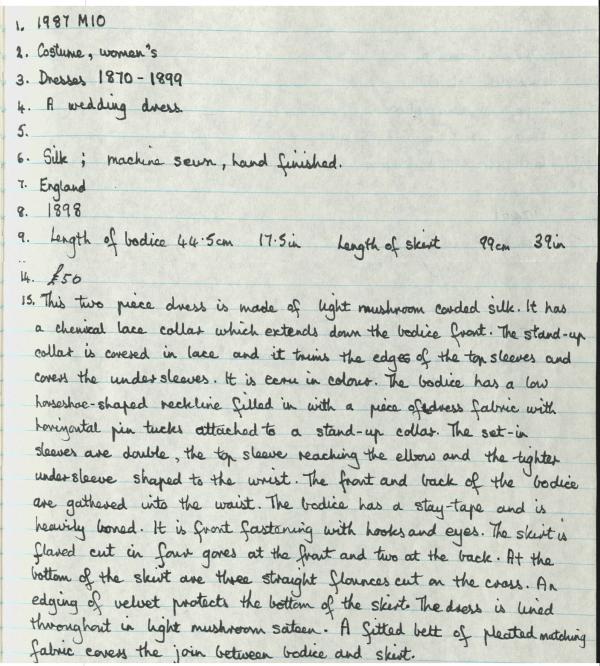 1. 1987 M10
2. Costume, women's
3. Dresses 1870 - 1899
4. A wedding dress
5.
6. Silk ; machine sewn, hand finished.
7. England
8. 1898
9. Length of bodice 44.5cm 17.5in Length of skirt 99cm 39in
..
14. £50
15. This two piece dress is made of light mushroom corded silk. It has
a chemical lace collar which extends down the bodice front. The stand-up
collar is covered in lace and it trims the edges of the top sleeves and
covers the undersleeves. It is ecru in colour. The bodice has a low
horseshoe-shaped neckline filled in with a piece of dress fabric with
horizontal pin tucks attached to a stand-up collar. The set-in
sleeves are double, the top sleeve reaching the elbow and the tighter
undersleeve shaped to the wrist. The front and back of the bodice
are gathered into the waist. The bodice has a stay-tape and is
heavily boned. It is front fastening with hooks and eyes. The skirt is
flared cut in four gores at the front and two at the back. At the
bottom of the skirt are three straight flounces cut on the cross. An
edging of velvet protects the bottom of the skirt. The dress is lined
throughout in light mushroom sateen. A fitted belt of pleated matching
fabric covers the join between bodice and skirt.